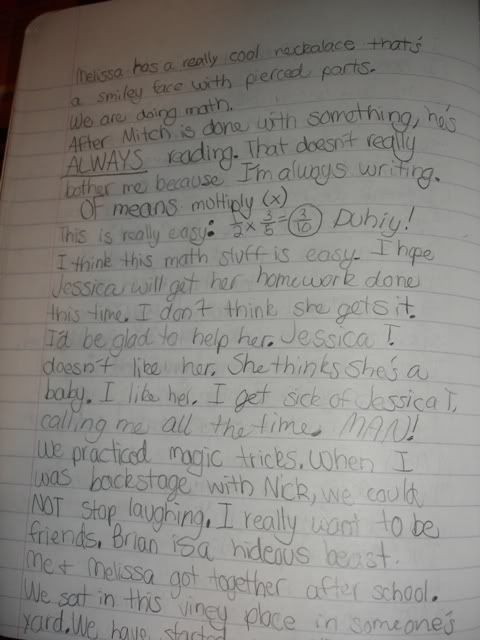 Melissa has a really cool neckalace that's
a smiley face with pierced parts.
We are doing math.
After Mitch is done with something, he's
ALWAYS reading. That doesn't really
bother me because I'm always writing.
Of means moltiply (x)
This is really easy: 1/2 x 3/5 = 3/10 Duhiy!
I think this math stuff is easy. I hope
Jessica will get her homework done
this time. I don't think she gets it.
I'd be glad to help her. Jessica T.
doesn't like her. She thinks she's a
baby. I like her. I get sick of Jessica T.
calling me all the time. MAN!
We practiced magic tricks. When I
was backstage with Nick, we could
NOT stop laughing. I really want to be
friends. Brian is a hideous beast.
Me + Melissa got together after school.
We sat in this viney place in someone's
yard. We have started